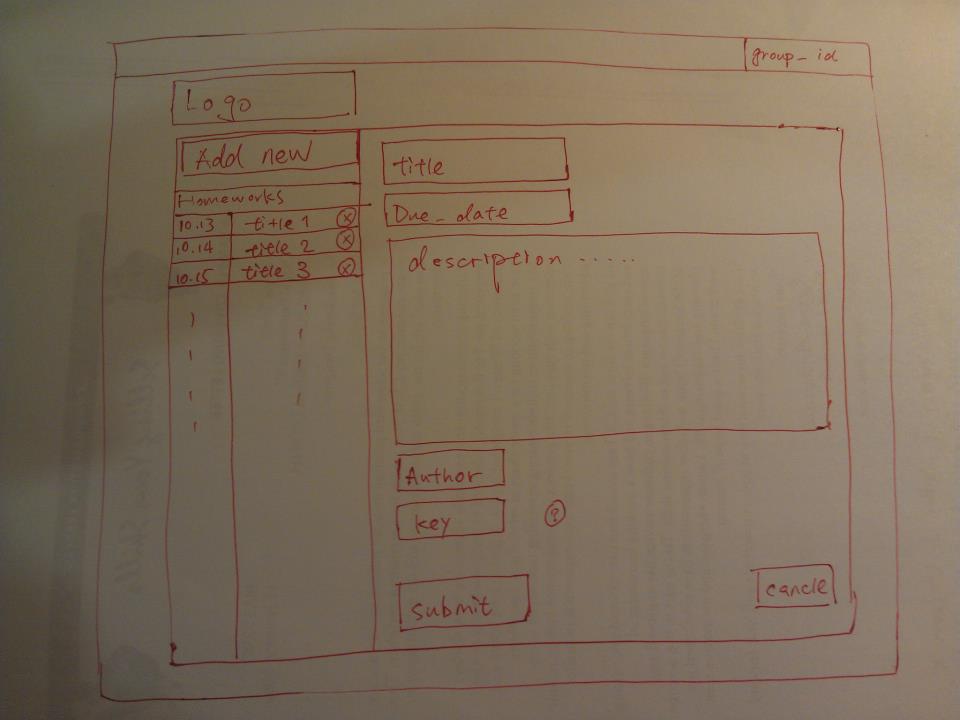 group_id
Logo
Add new
Homeworks
10.13 title 1 x
10.14 title 2 x
10.15 title 3 x
title
Due_date
description .....
Author
key ?
submit
cancle